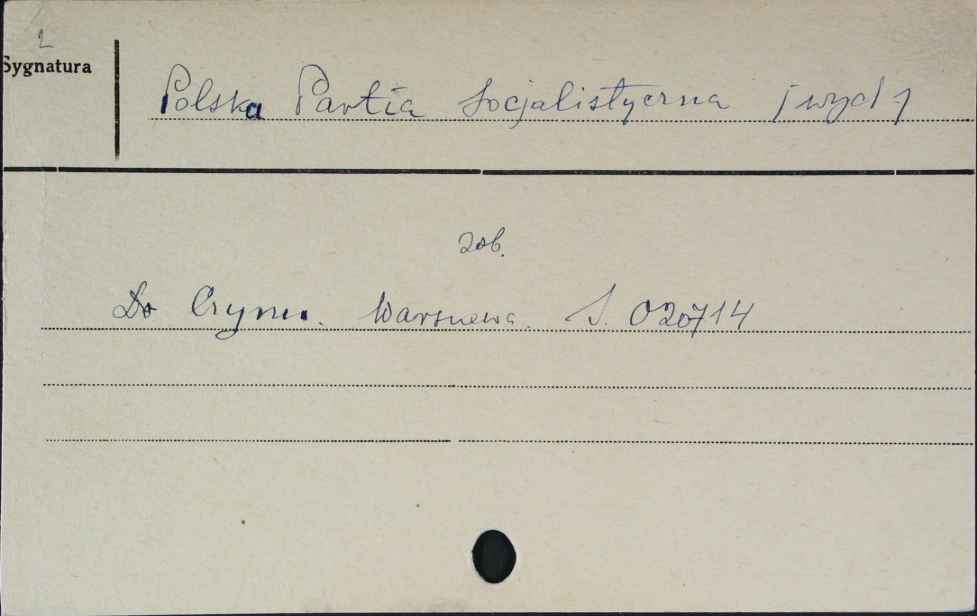 2
Sygnatura
Polska Partia Socjalistyczna [wyd]
zob.
Do Czynu. Warszawa. S. 020714